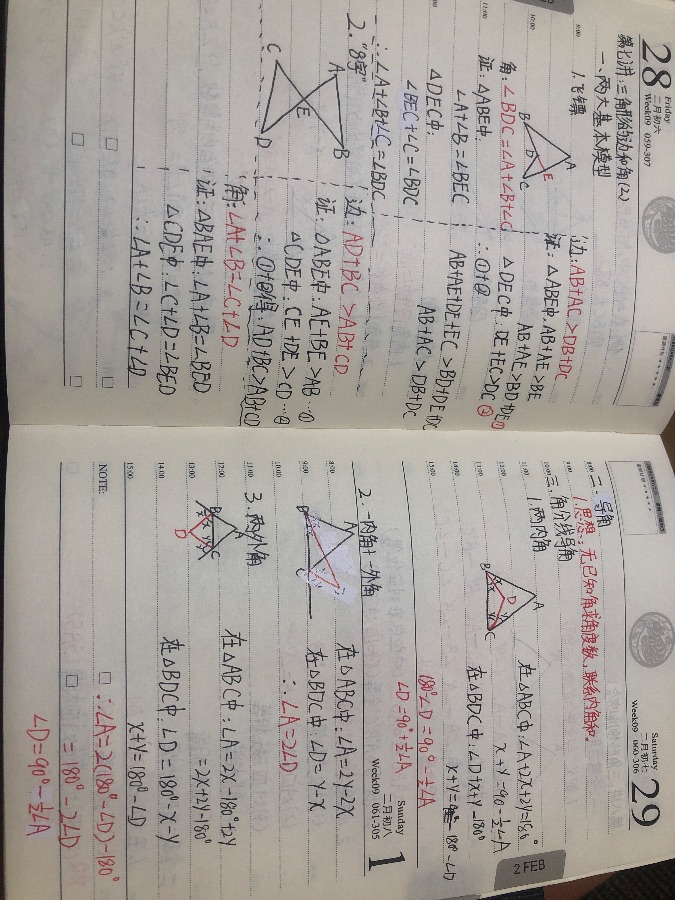 28
Friday
二月初六
Week09 059-307
第七讲:三角形的边和角(2)
一、两大基本模型
1.飞镖
A
B
C
D
E
边:AB+AC>DB+DC
证:△ABE中:AB+AE>BE
AB+AE>BD+DE①
角:∠BDC=∠A+∠B+∠C
△DEC中:DE+EC>DC②
证:△ABE中.
∴①+②
∠A+∠B=∠BEC
AB+AE+DE+EC>BD+DE+DC
△DEC中.
AB+AC>DB+DC
∠BEC+∠C=∠BDC
∴∠A+∠B+∠C=∠BDC
2."8字"
A
B
C
D
E
边:AD+BC>AB+CD
证:△ABE中:AE+BE>AB…①
△CDE中:CE+DE>CD…②
∴①+②得:AD+BC>AB+CD
角:∠A+∠B=∠C+∠D
证:△BAE中:∠A+∠B=∠BED
△CDE中:∠C+∠D=∠BED
∴∠A+∠B=∠C+∠D
9:00
10:00
11:00
Saturday
29
二月初七
Week09 060-306
2 FEB
二.导角
1.思想:无已知角求角度数,联系内角和。
三、角分线导角
1.两内角
A
B
C
D
在△ABC中:∠A+2x+2y=180°
x+y=90-½∠A
在△BDC中:∠D+x+y=180°
x+y=180-∠D
180°-∠D=90°-½∠A
∠D=90°+½∠A
8:00
9:00
10:00
11:00
12:00
13:00
14:00
15:00
Sunday
1
二月初八
Week09 061-305
2.一内角+一外角
A
B
C
在△ABC中:∠A=2y-2x
在△BDC中:∠D=y-x
∴∠A=2∠D
3.两外角
B
C
D
在△ABC中:∠A=2x-180°+2y
=2x+2y-180°
在△BDC中:∠D=180°-x-y
x+y=180°-∠D
∴∠A=2(180°-∠D)-180°
=180°-2∠D
∠D=90°-½∠A
8:00
9:00
10:00
11:00
12:00
13:00
14:00
15:00
NOTE: